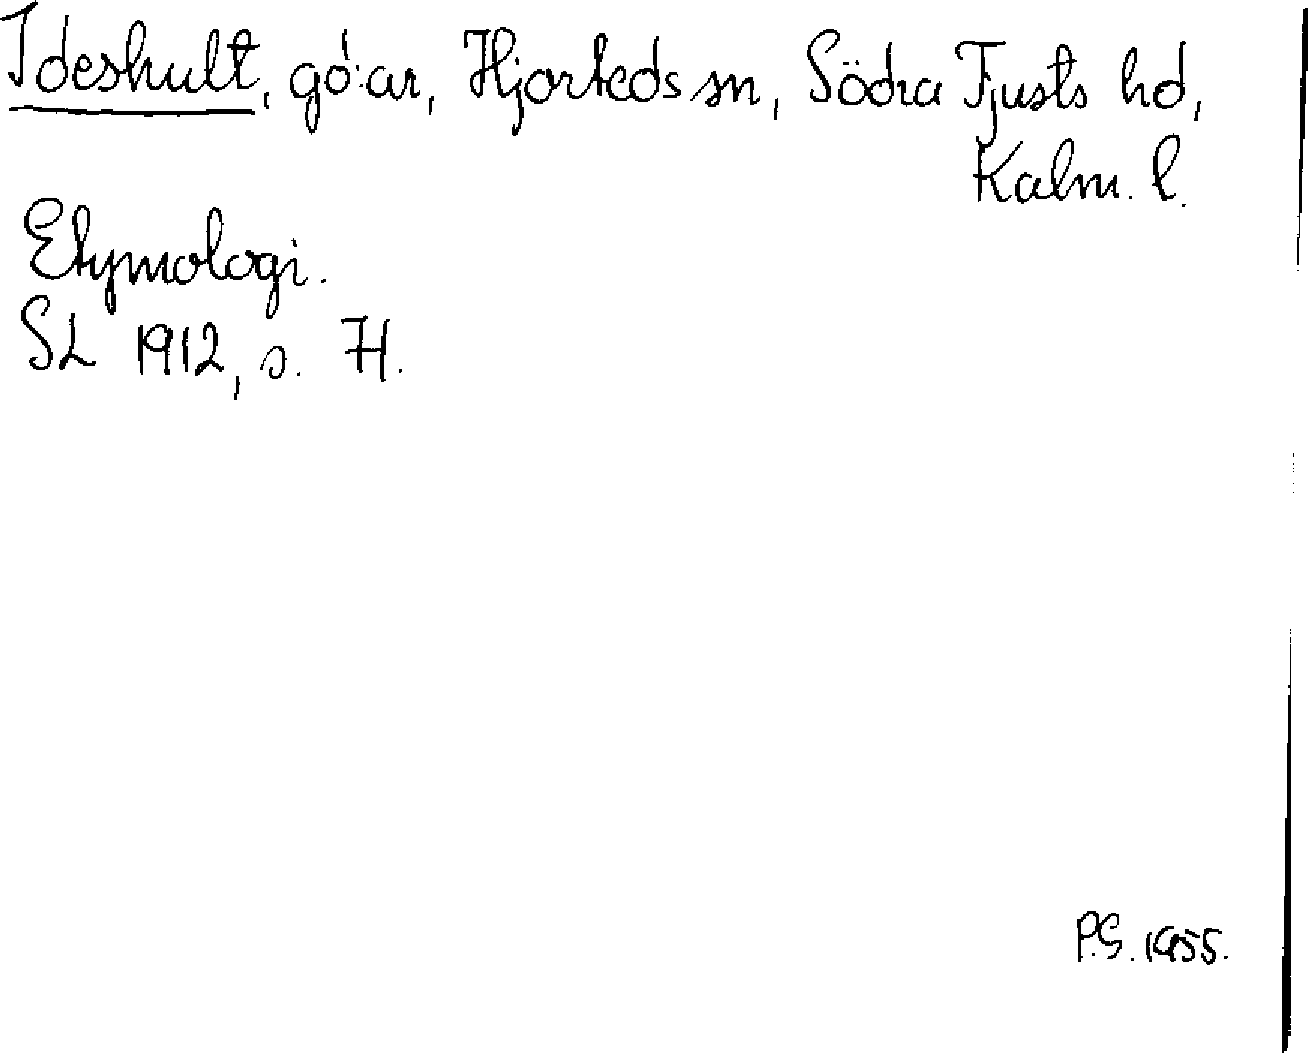 Ideshult, gó:ar, Hjorteds sn, Södra Tjusts hd,
Kalm. l.
Etymologi.
SL 1912, s. 71.
P.G. 1955.